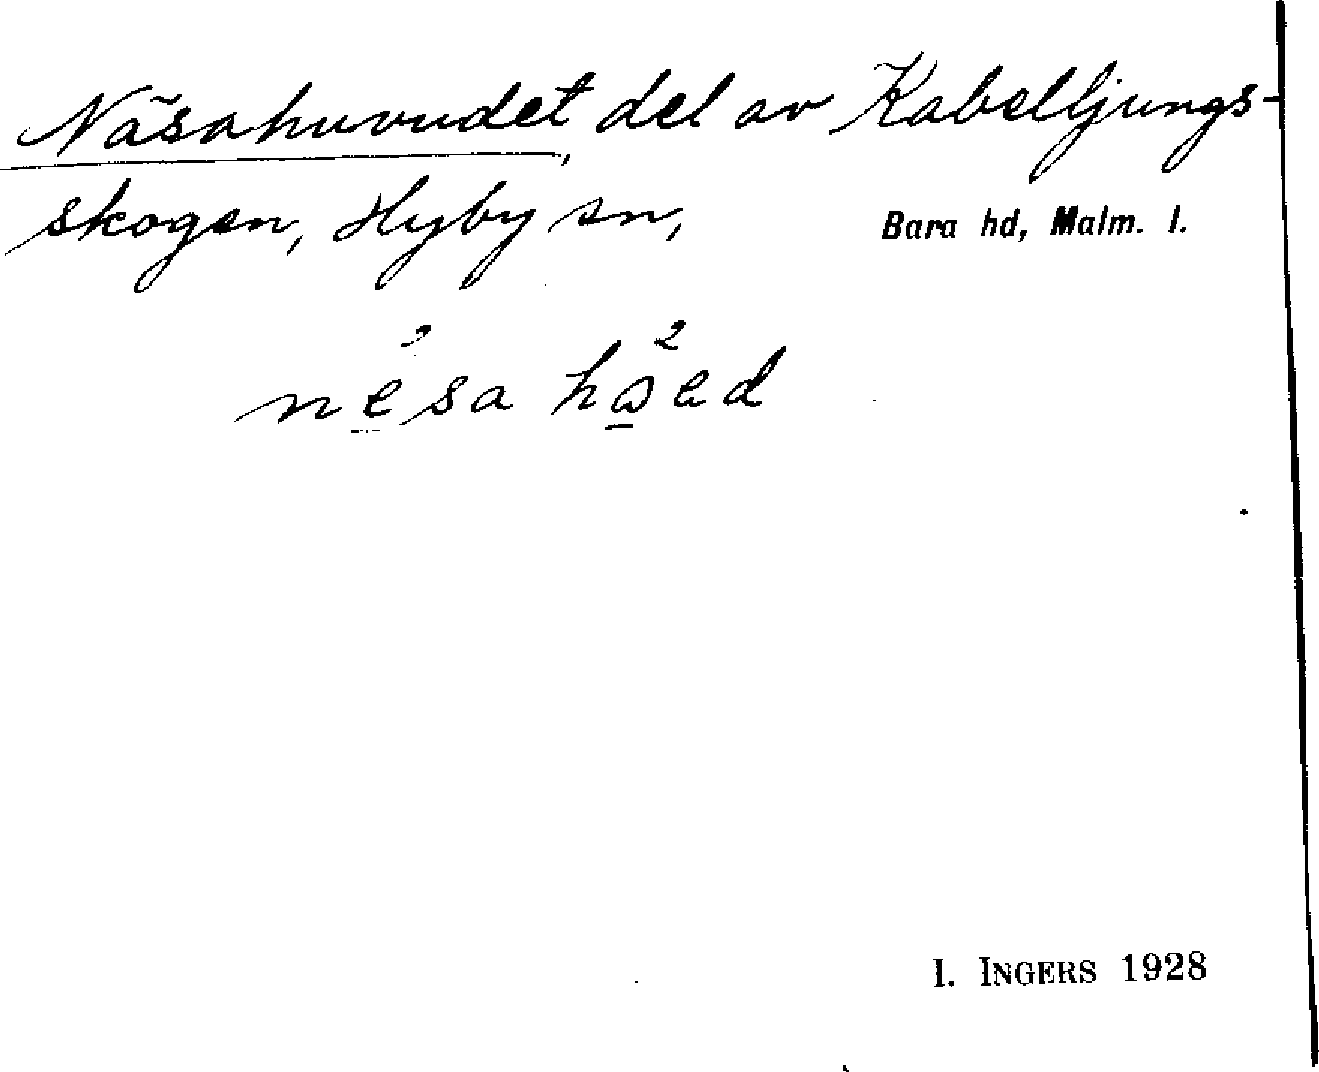 Näsahuvudet, del av Kabelljungs-
skogen, Hyby sn, Bara hd, Malm. l.
nésa
I. INGERS 1928